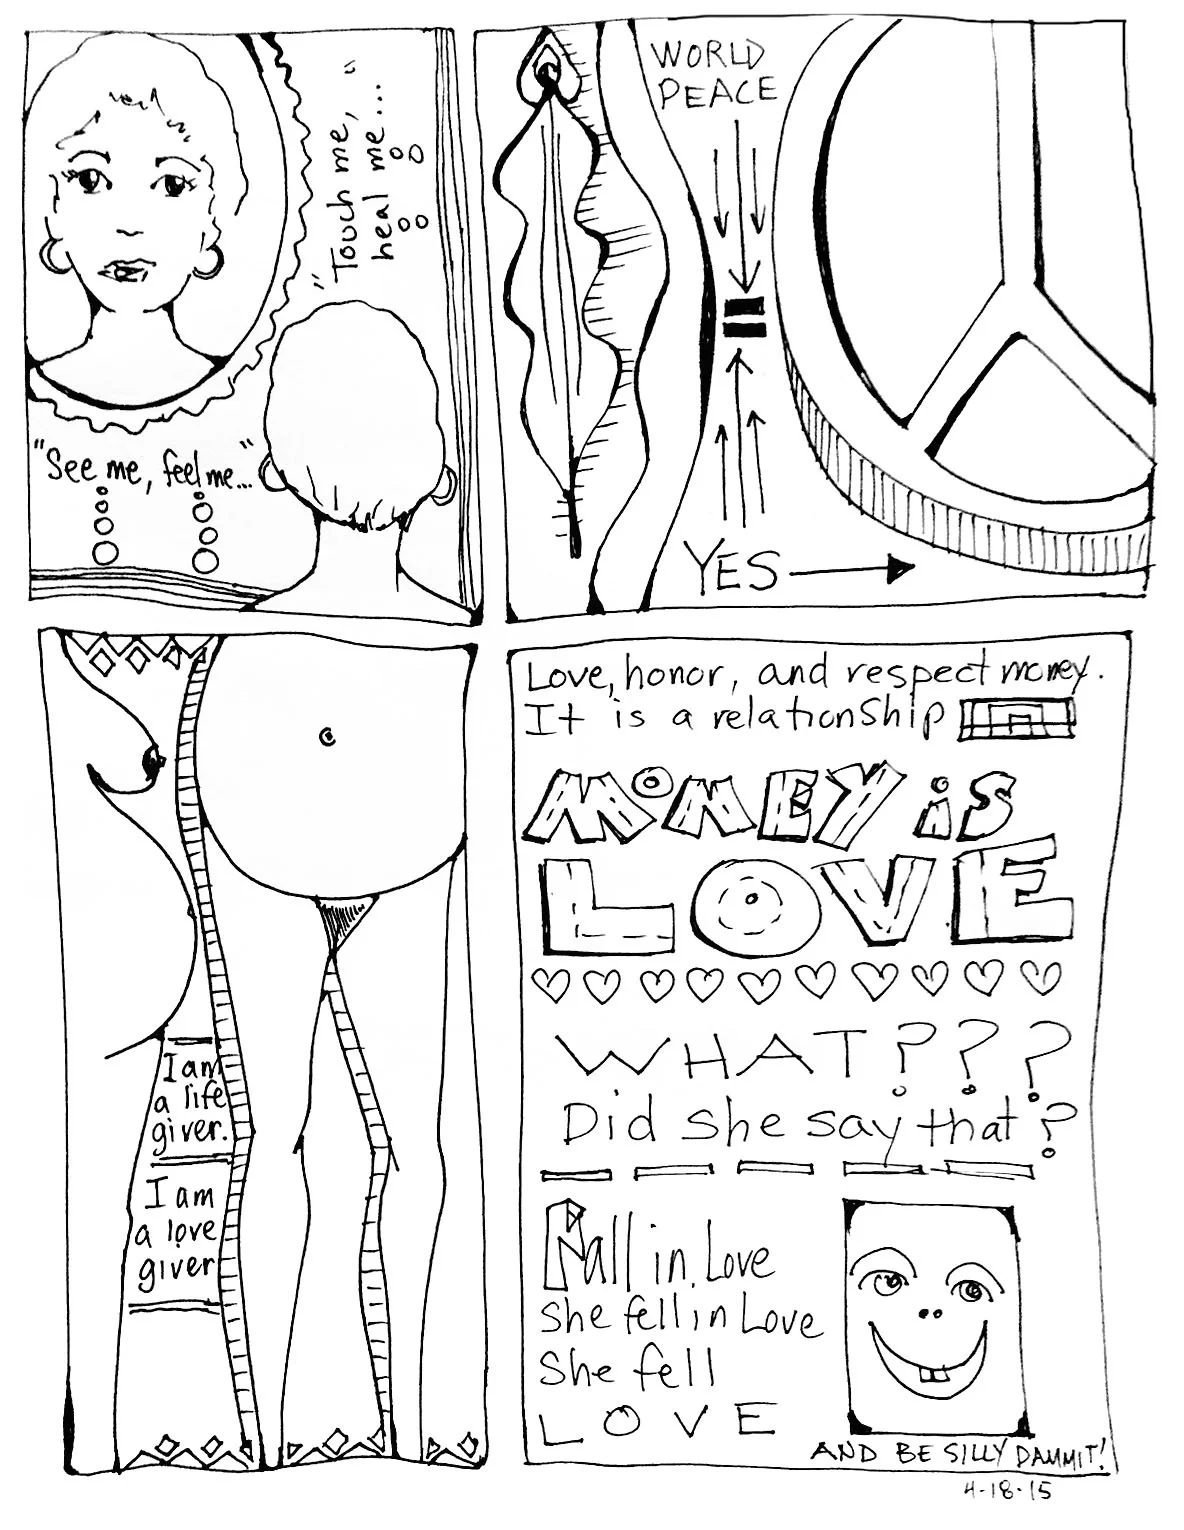 "Touch me,
heal me..."
"See me, feel me..."
WORLD
PEACE
=
YES
I am
a life
giver.
I am
a love
giver
Love, honor, and respect money.
It is a relationship
MONEY is
LOVE
WHAT???
Did she say that?
Fall in Love
She fell in Love
She fell
LOVE
AND BE SILLY DAMMIT!
4-18-15